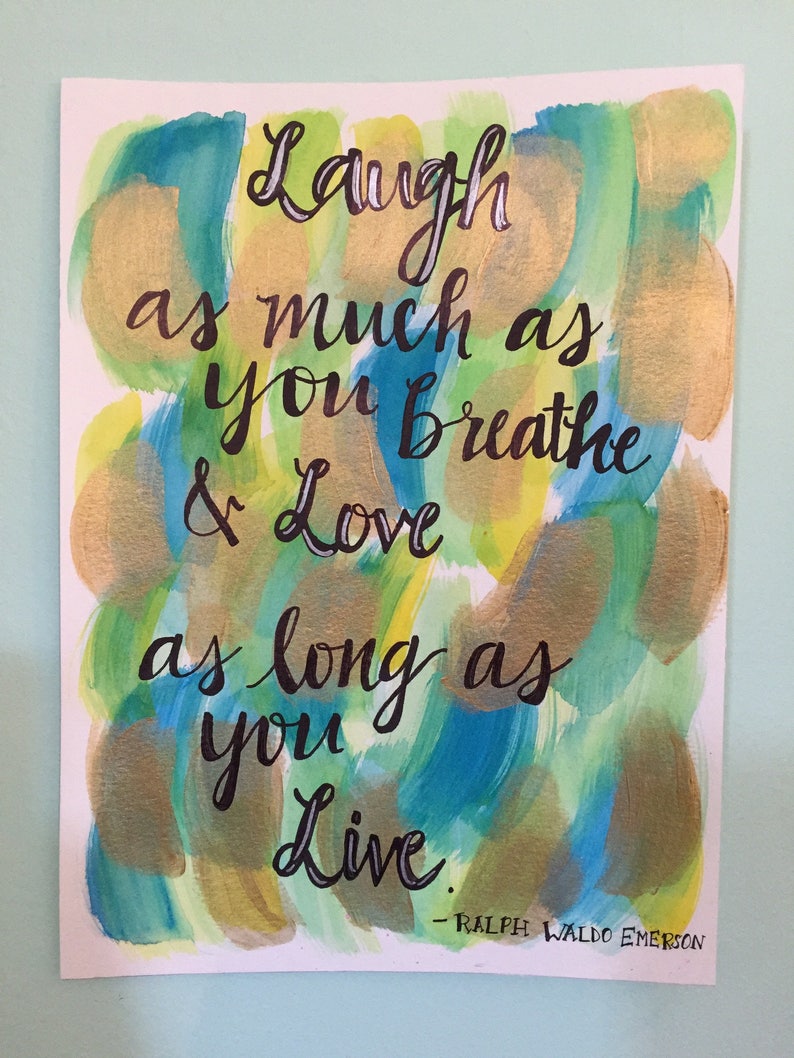 Laugh
as much as
you breathe
& Love
as long as
you
Live.
- RALPH WALDO EMERSON